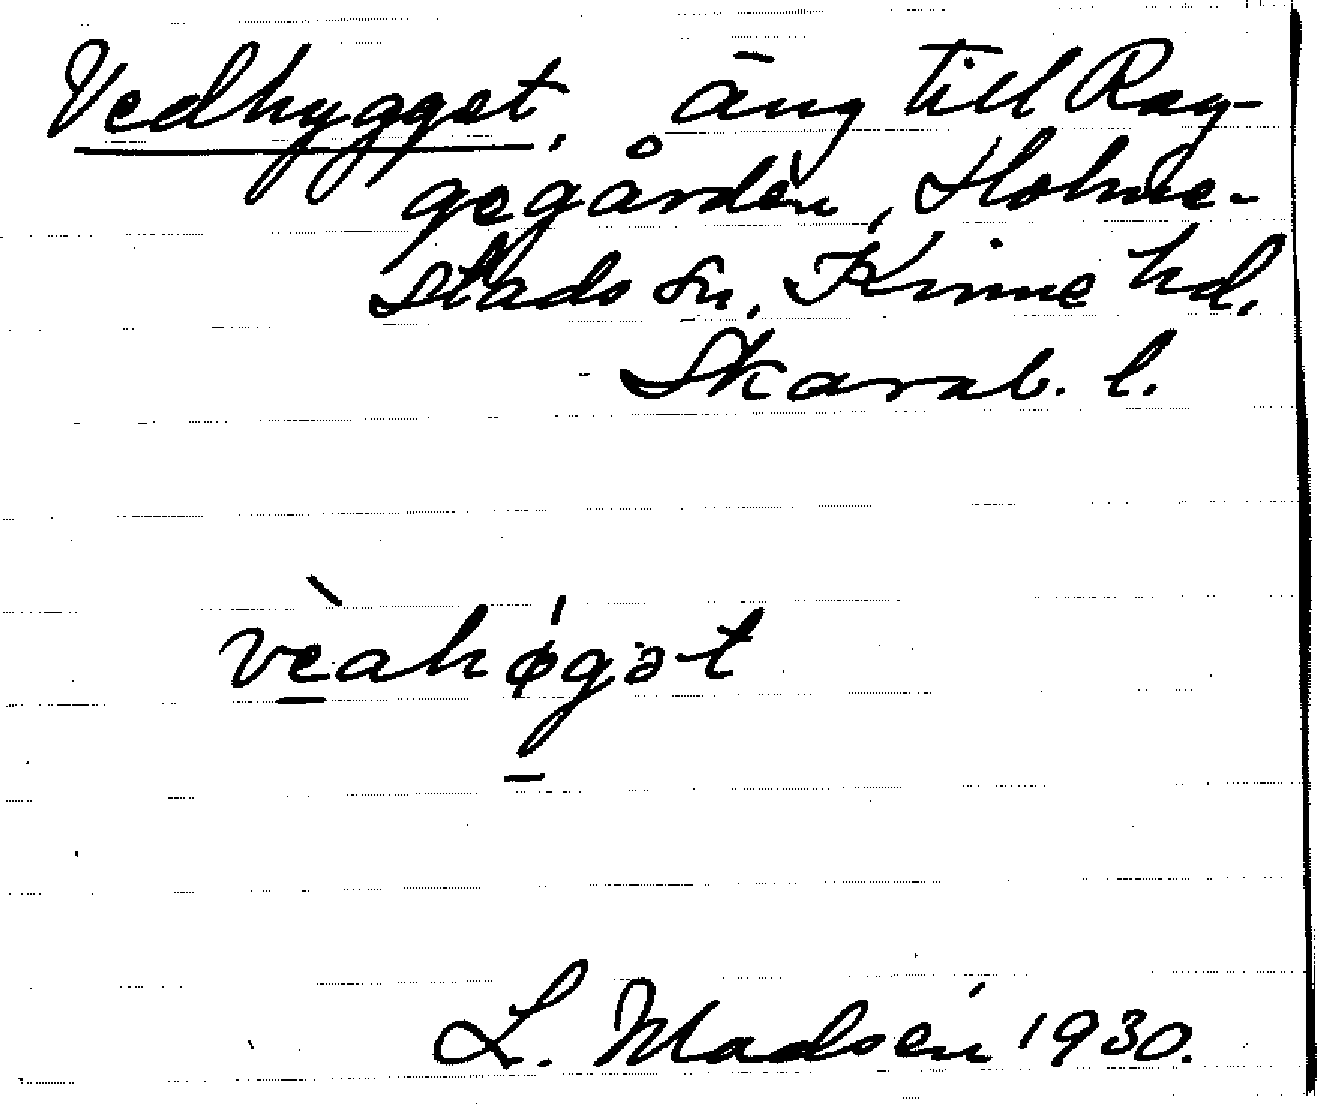 Vedhygget, äng till Rag-
gegården, Holme-
stads sn, Kinne hd,
Skarab. l.
vèahøgət
L. Madsén 1930.